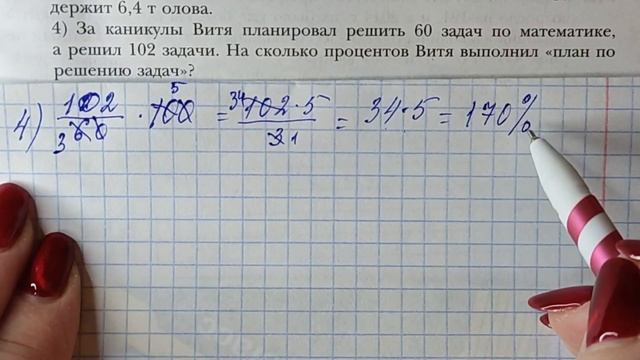 держит 6,4 т олова.
4) За каникулы Витя планировал решить 60 задач по математике,
а решил 102 задачи. На сколько процентов Витя выполнил «план по
решению задач»?
4) 102/60 · 100 = 102·5/3 = 34·5 = 170%
34 5
3 1